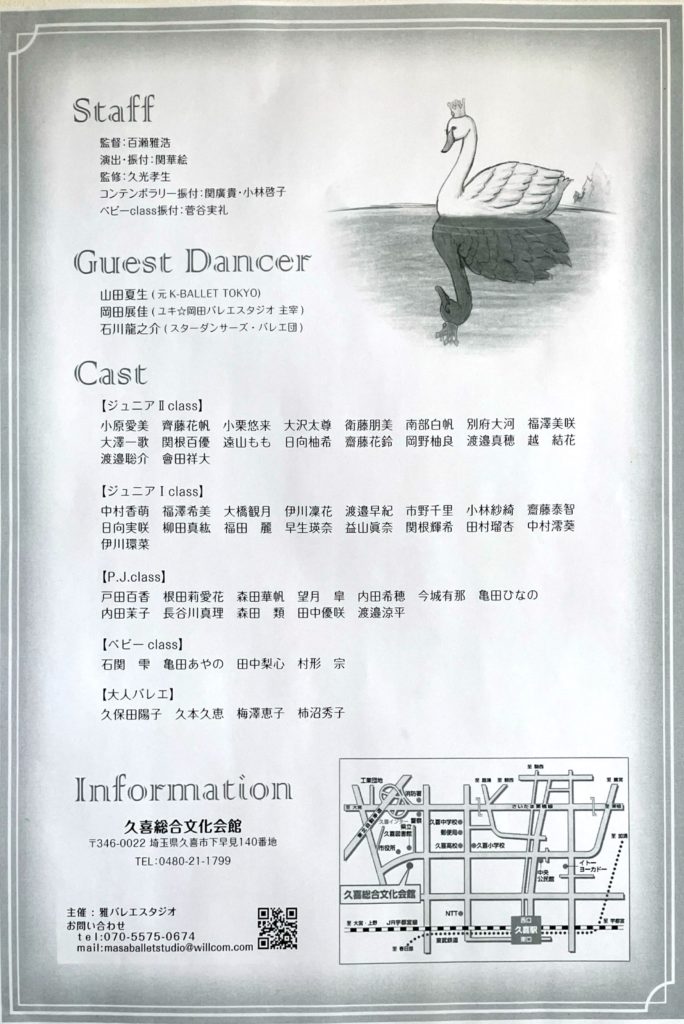 Staff
監督：百瀬雅浩
演出・振付：関華絵
監修：久光孝生
コンテンポラリー振付：関廣貴・小林啓子
ベビーclass振付：菅谷実礼
Guest Dancer
山田夏生(元 K-BALLET TOKYO)
岡田展佳(ユキ☆岡田バレエスタジオ 主宰)
石川龍之介(スターダンサーズ・バレエ団)
Cast
【ジュニアⅡclass】
小原愛美　齊藤花帆　小栗悠来　大沢太尊　衛藤朋美　南部白帆　別府大河　福澤美咲
大澤一歌　関根百優　遠山もも　日向柚希　齋藤花鈴　岡野柚良　渡邉真穂　越　結花
渡邉聡介　會田祥大
【ジュニアⅠclass】
中村香萌　福澤希美　大橋観月　伊川凜花　渡邉早紀　市野千里　小林紗綺　齋藤泰智
日向実咲　柳田真紘　福田　麗　早生瑛奈　益山眞奈　関根輝希　田村瑠杏　中村澪葵
伊川環菜
【P.J.class】
戸田百香　根田莉愛花　森田華帆　望月　皐　内田希穂　今城有那　亀田ひなの
内田茉子　長谷川真理　森田　類　田中優咲　渡邉涼平
【ベビー class】
石関　雫　亀田あやの　田中梨心　村形　宗
【大人バレエ】
久保田陽子　久本久恵　梅澤恵子　柿沼秀子
Information
久喜総合文化会館
〒346-0022 埼玉県久喜市下早見140番地
TEL：0480-21-1799
主催：雅バレエスタジオ
お問い合わせ
tel:070-5575-0674
mail:masaballetstudio@willcom.com
工業団地
消防署
至 大宮
さいたま栗橋線
久喜インター
警察
県立
久喜図書館
市役所
久喜中学校
郵便局
久喜高校
久喜小学校
中央
公民館
イトー
ヨーカドー
久喜総合文化会館
NTT
至 大宮・上野
JR宇都宮線
西口
久喜駅
東口
至 宇都宮
東武鉄道
至 春日部
至 加須